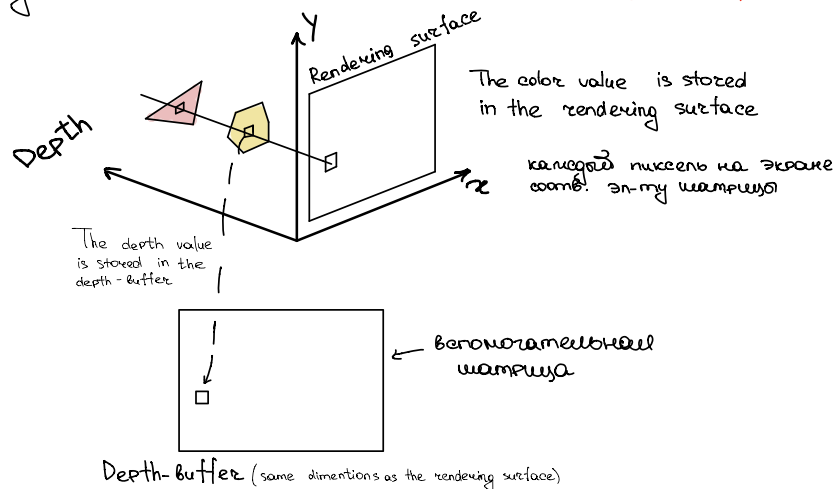 y
Rendering surface
The color value is stored
in the rendering surface
каждый пиксель на экране
соотв. эл-ту матрицы
Depth
x
The depth value
is stored in the
depth-buffer
вспомогательная
матрица
Depth-buffer (same dimentions as the rendering surface)